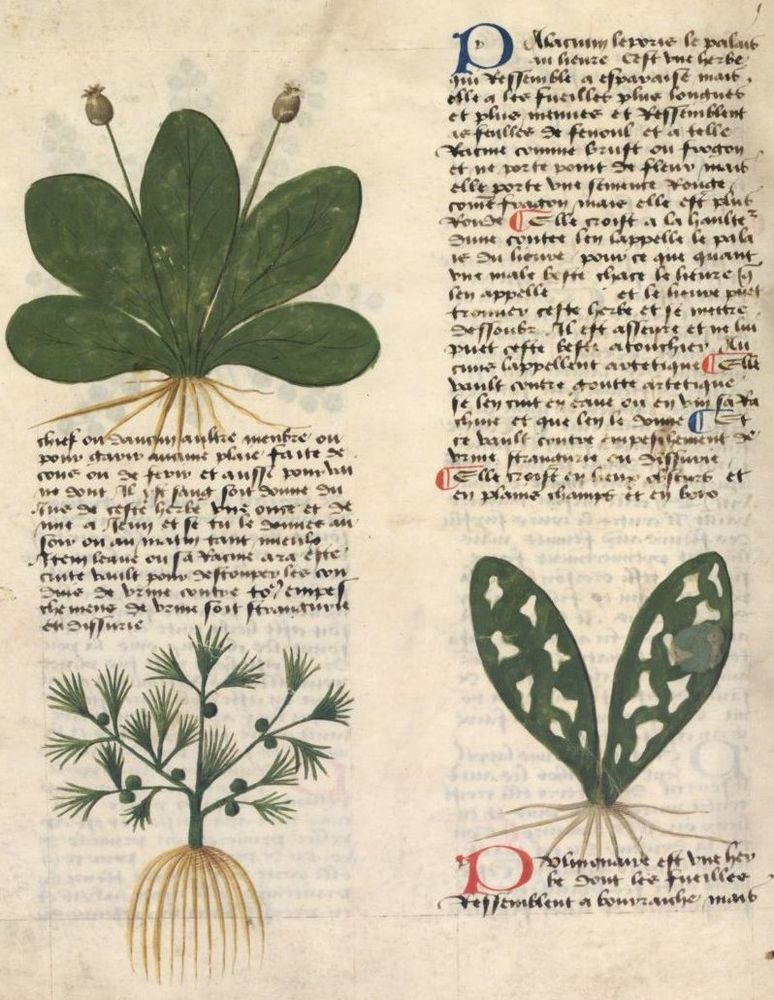 chief ou daucun aultre menbre ou
pour garir aucune plaie faite de
cous ou de ferir et aussi pour un
ne dont il yst sang soit donne du
jus de ceste herbe une once et de
mie a et se tu le donnes au
soir ou au matin tant mieulx
Item leaue ou sa racine ara este
cuite vault pour destouper les con
duis de urine contre tos empes
chemens de urine soit strangurie
ou dissurie
Palacium leporis le palais
au lieure Cest une herbe
qui Ressemble a esparaise mais
elle a les fueilles plus longues
et plus menues et Ressemblent
as feulles de fenoul et a telle
Racine comme brust ou frogon
et ne porte point de fleur mais
elle porte une semence Rouge
come fragon mais elle est plus
Ronde Elle croist a la haulte
dune coutee len lappelle le pala
is du lieure pour ce que quant
une male beste chace le lieure q
len appelle et le lieure puet
trouuer ceste herbe et se mettre
dessoubz Il est asseure et ne lui
puet ceste beste atouchier Au
cuns lappellent artetique Elle
vault contre goutte artetique
se len cuit en eaue ou en vin sa Ra
chine et que len le donne Et
ce vault contre empeschement de
urine strangurie ou dissurie
Elle croist en lieux obscurs et
en plains champs et en bois
Pulmonaire est une her
be dont les fueilles
Ressemblent a bourrache mais